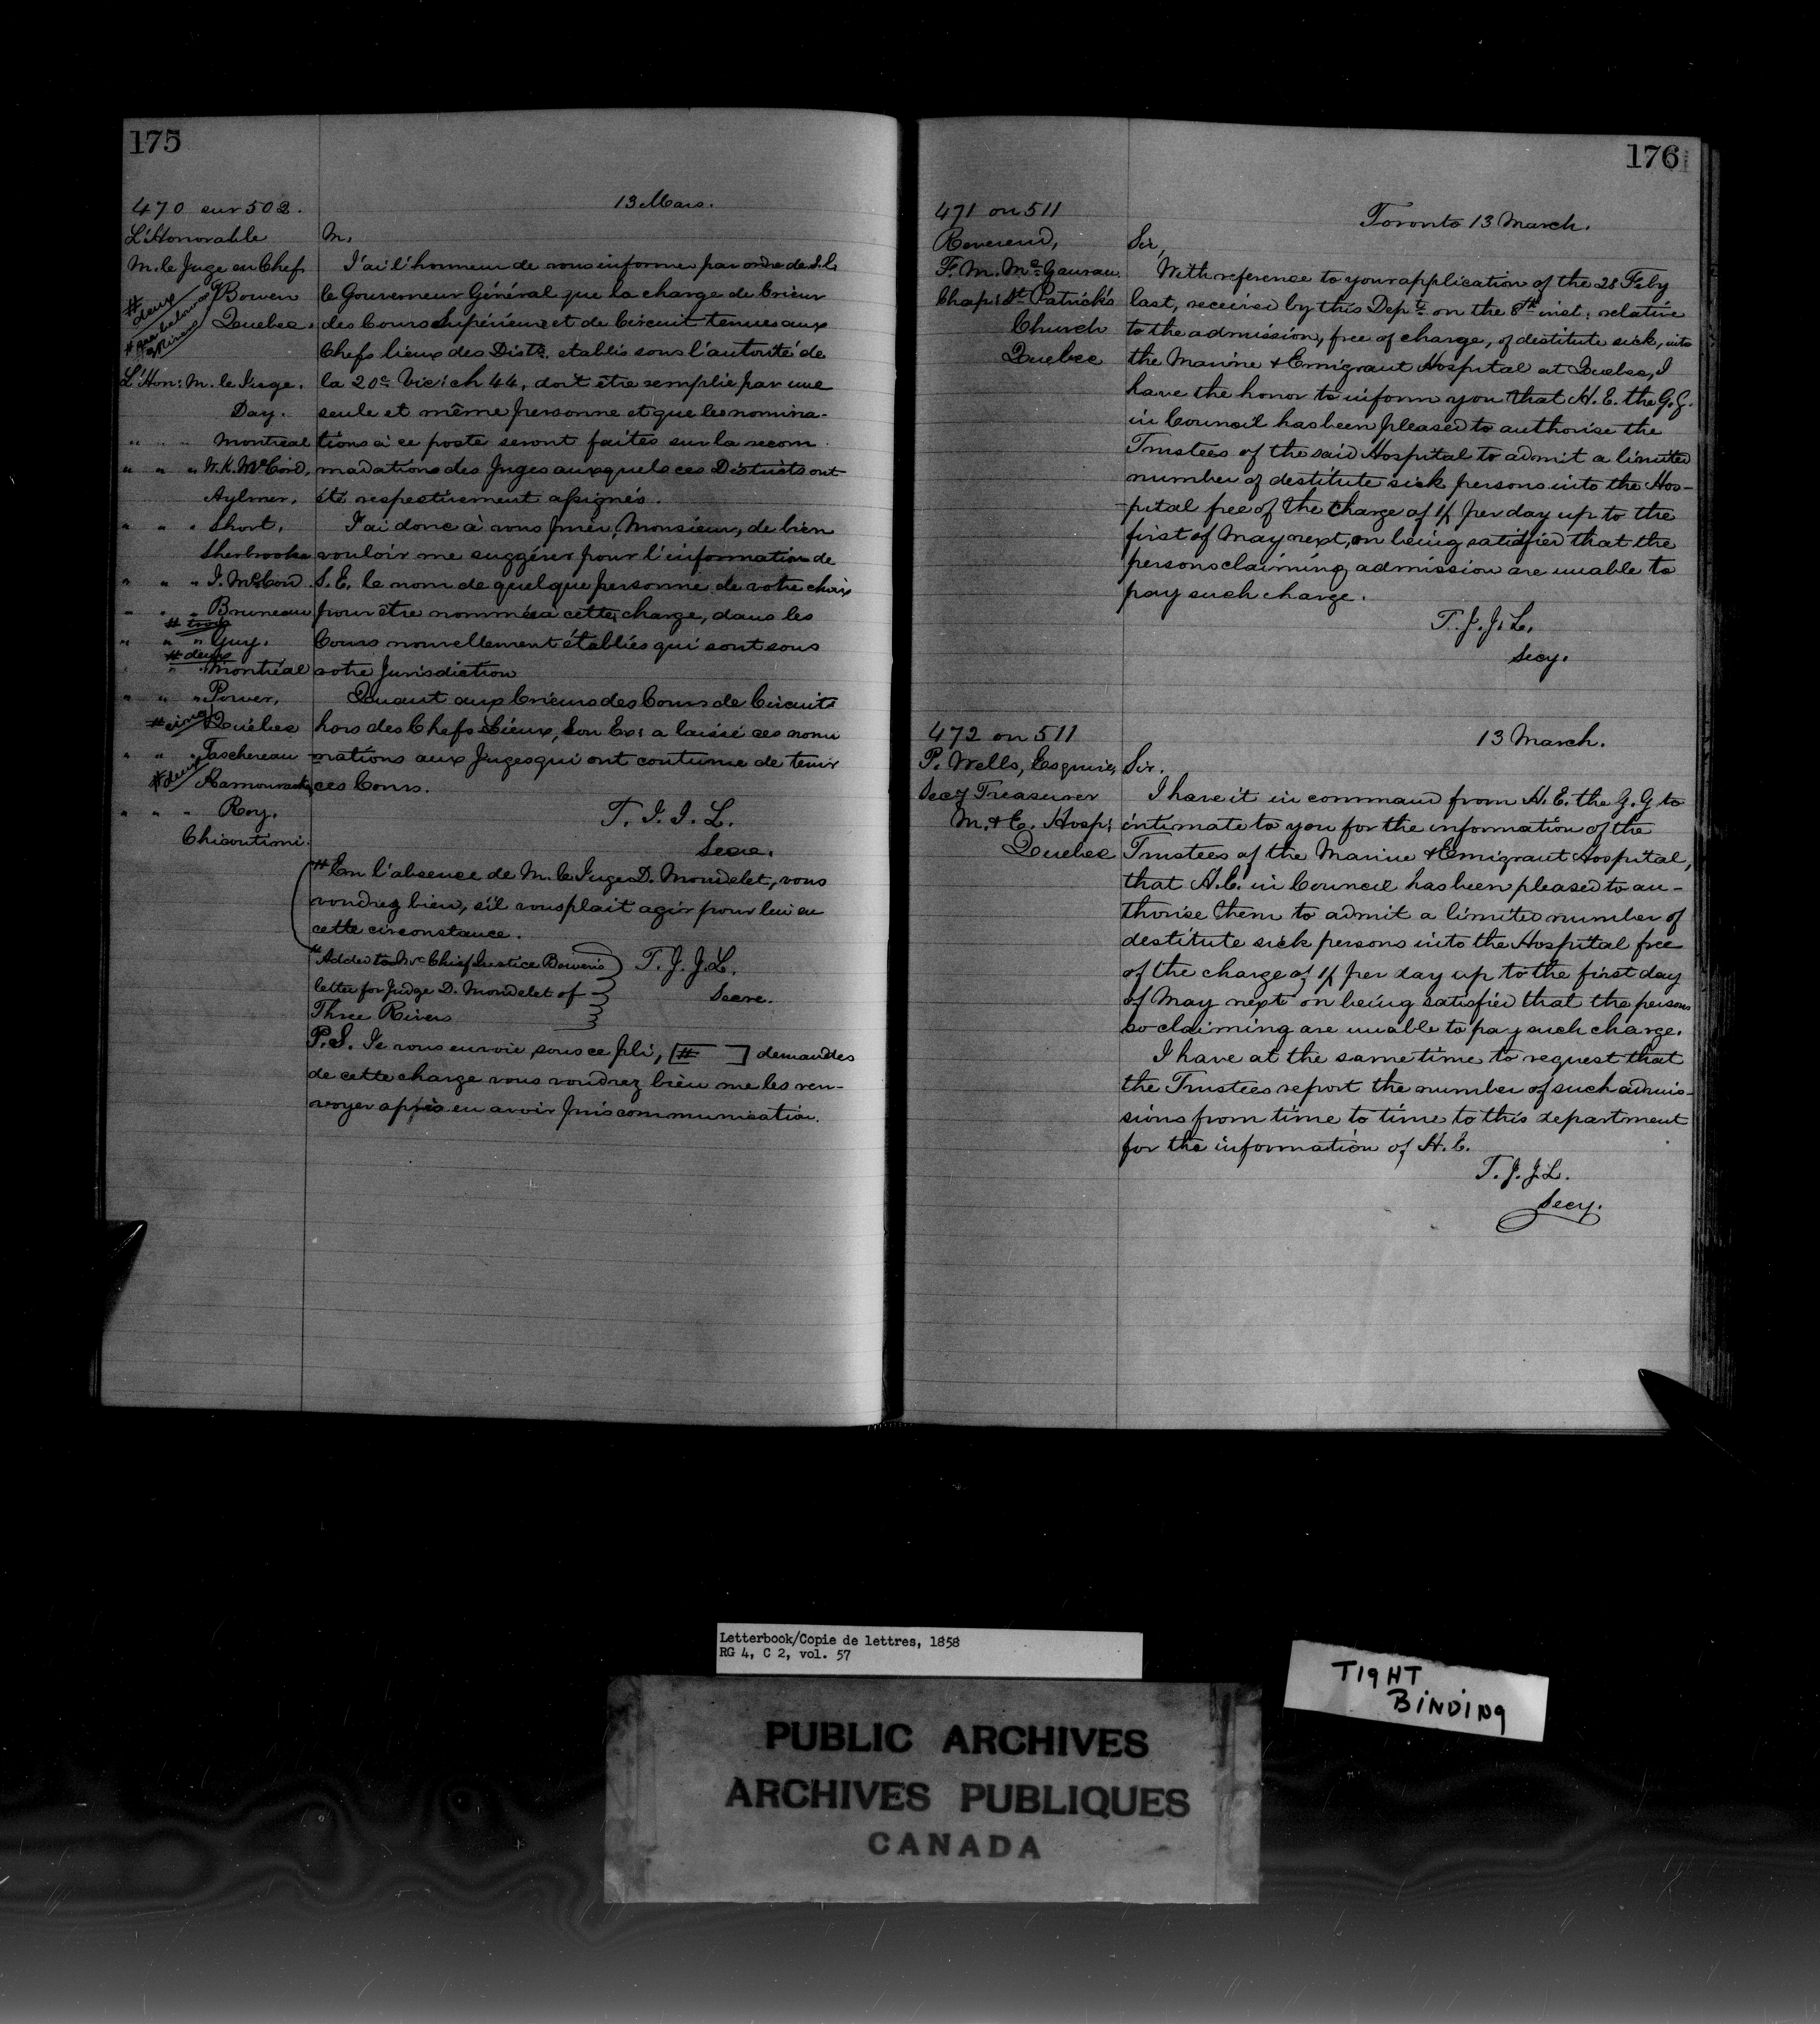 175
470 sur 502.
13 Mars.
L'Honorable
M. le Juge en Chef
# deux
Bowen
Quebec.
# see below
L'Hon: M. le Juge.
Day.
" " " Montreal
" " " W. K. McCord,
Aylmer.
" " " Short.
Sherbrooke
" " " J. McCord.
" " " Bruneau
# trois
" " " Guy.
# deux
" " " Montréal
" " " Power,
# cinq Québec
" " " Taschereau
# deux Kamouraska
" " " Roy.
Chicoutimi.
M.
J'ai l'honneur de vous informer par ordre de S. E.
le Gouverneur Général que la charge de Crieur
des Cours Supérieure et de Circuit tenues aux
Chefs lieux des Distts. etablis sous l'autorité de
la 20e Vic: ch 44, doit être remplie par une
seule et même personne et que les nomina-
tions à ce poste seront faites sur la recom
madations des Juges auxquels ces Districts ont
été respectivement assignés.
J'ai donc à vous prier, Monsieur, de bien
vouloir me suggérer pour l'information de
S. E. le nom de quelque personne de votre choix
pour être nommée à cette charge, dans les
Cours nouvellement établies qui sont sous
votre Jurisdiction
Quant aux Crieurs des Cours de Circuit
hors des Chefs Lieux, Son Ex: a laissé ces nomi
nations aux Juges qui ont coutume de tenir
ces Cours.
T. J. J. L.
Secre.
# En l'absence de M. le Juge D. Mondelet, vous
voudrez bien, s'il vous plait agir pour lui en
cette circonstance.
# Added to Mr Chief Justice Bowen's
letter for Judge D. Mondelet of
Three Rivers
T. J. J. L.
Secre.
P.S. Je vous envoie sous ce pli, [# ] demandes
de cette charge vous voudrez bien me les ren-
voyer après en avoir pris communication.
176
471 on 511
Toronto 13 March.
Reverend,
F. M. McGauran
Chap: St Patrick's
Church
Quebec
Sir,
With reference to your application of the 28 Feby
last, received by this Depte on the 8th inst: relative
to the admission, free of charge, of destitute sick, into
the Marine & Emigrant Hospital at Quebec, I
have the honor to inform you that H. E. the G. G.
in Council has been pleased to authorise the
Trustees of the said Hospital to admit a limited
number of destitute sick persons into the Hos-
pital free of the charge of 1/ per day up to the
first of May next, on being satisfied that the
persons claiming admission are unable to
pay such charge.
T. J. J. L.
Secy.
472 on 511
13 March.
P. Wells, Esquire,
Secy Treasurer
M. & E. Hosp:
Quebec
Sir.
I have it in command from H. E. the G. G to
intimate to you for the information of the
Trustees of the Marine & Emigrant Hospital,
that H. E. in Council has been pleased to au-
thorise them to admit a limited number of
destitute sick persons into the Hospital free
of the charge of 1/ per day up to the first day
of May next on being satisfied that the persons
so claiming are unable to pay such charge.
I have at the same time to request that
the Trustees report the number of such admis-
sions from time to time to this department
for the information of H. E.
T. J. J. L.
Secy.
Letterbook/Copie de lettres, 1858
RG 4, C 2, vol. 57
TIGHT
BINDING
PUBLIC ARCHIVES
ARCHIVES PUBLIQUES
CANADA